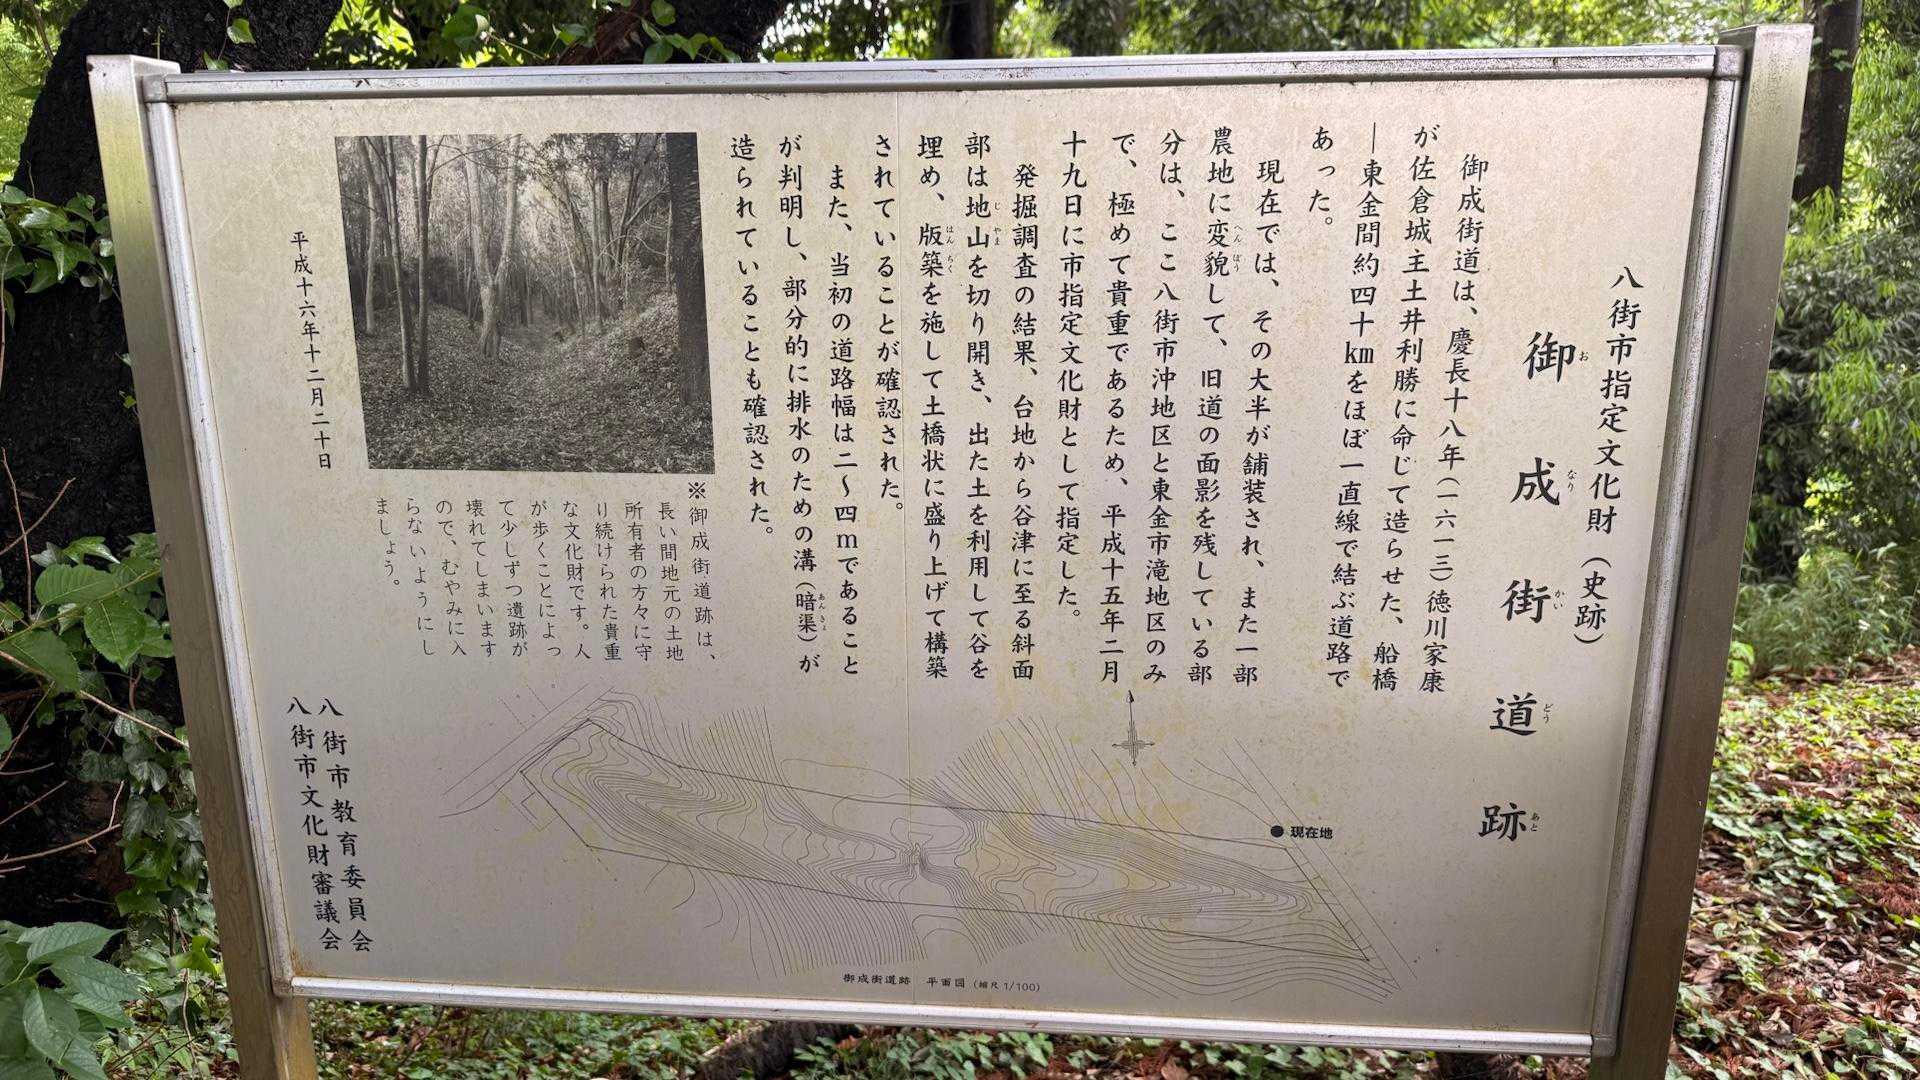 八街市指定文化財（史跡）
御成街道跡
お なり かい どう あと
御成街道は、慶長十八年（一六一三）徳川家康
が佐倉城主土井利勝に命じて造らせた、船橋
―東金間約四十kmをほぼ一直線で結ぶ道路で
あった。
現在では、その大半が舗装され、また一部
農地に変貌して、旧道の面影を残している部
へん ぼう
分は、ここ八街市沖地区と東金市滝地区のみ
で、極めて貴重であるため、平成十五年二月
十九日に市指定文化財として指定した。
発掘調査の結果、台地から谷津に至る斜面
部は地山を切り開き、出た土を利用して谷を
じ やま
埋め、版築を施して土橋状に盛り上げて構築
はん ちく
されていることが確認された。
また、当初の道路幅は二～四mであること
が判明し、部分的に排水のための溝（暗渠）が
あん きょ
造られていることも確認された。
※御成街道跡は、
長い間地元の土地
所有者の方々に守
り続けられた貴重
な文化財です。人
が歩くことによっ
て少しずつ遺跡が
壊れてしまいます
ので、むやみに入
らないようにし
ましょう。
平成十六年十二月二十日
八街市教育委員会
八街市文化財審議会
現在地
御成街道跡 平面図（縮尺1/100）